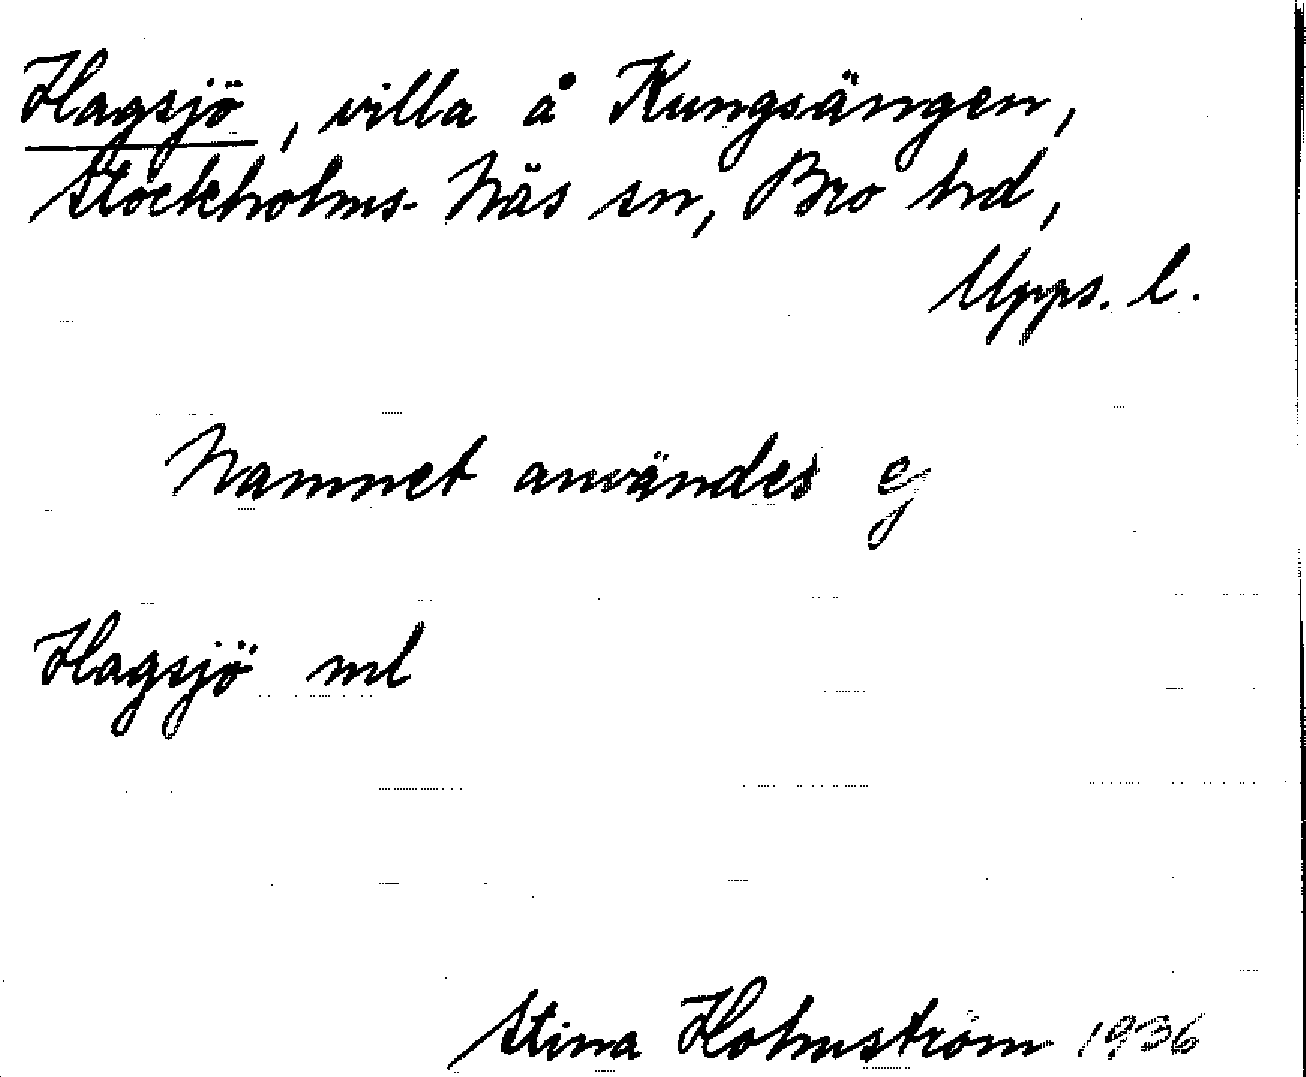 Hagsjö, villa å Kungsängen,
Stockholms-Näs sn, Bro hd,
Upps. l.
Namnet användes ej
Hagsjö ml
Stina Holmström 1936